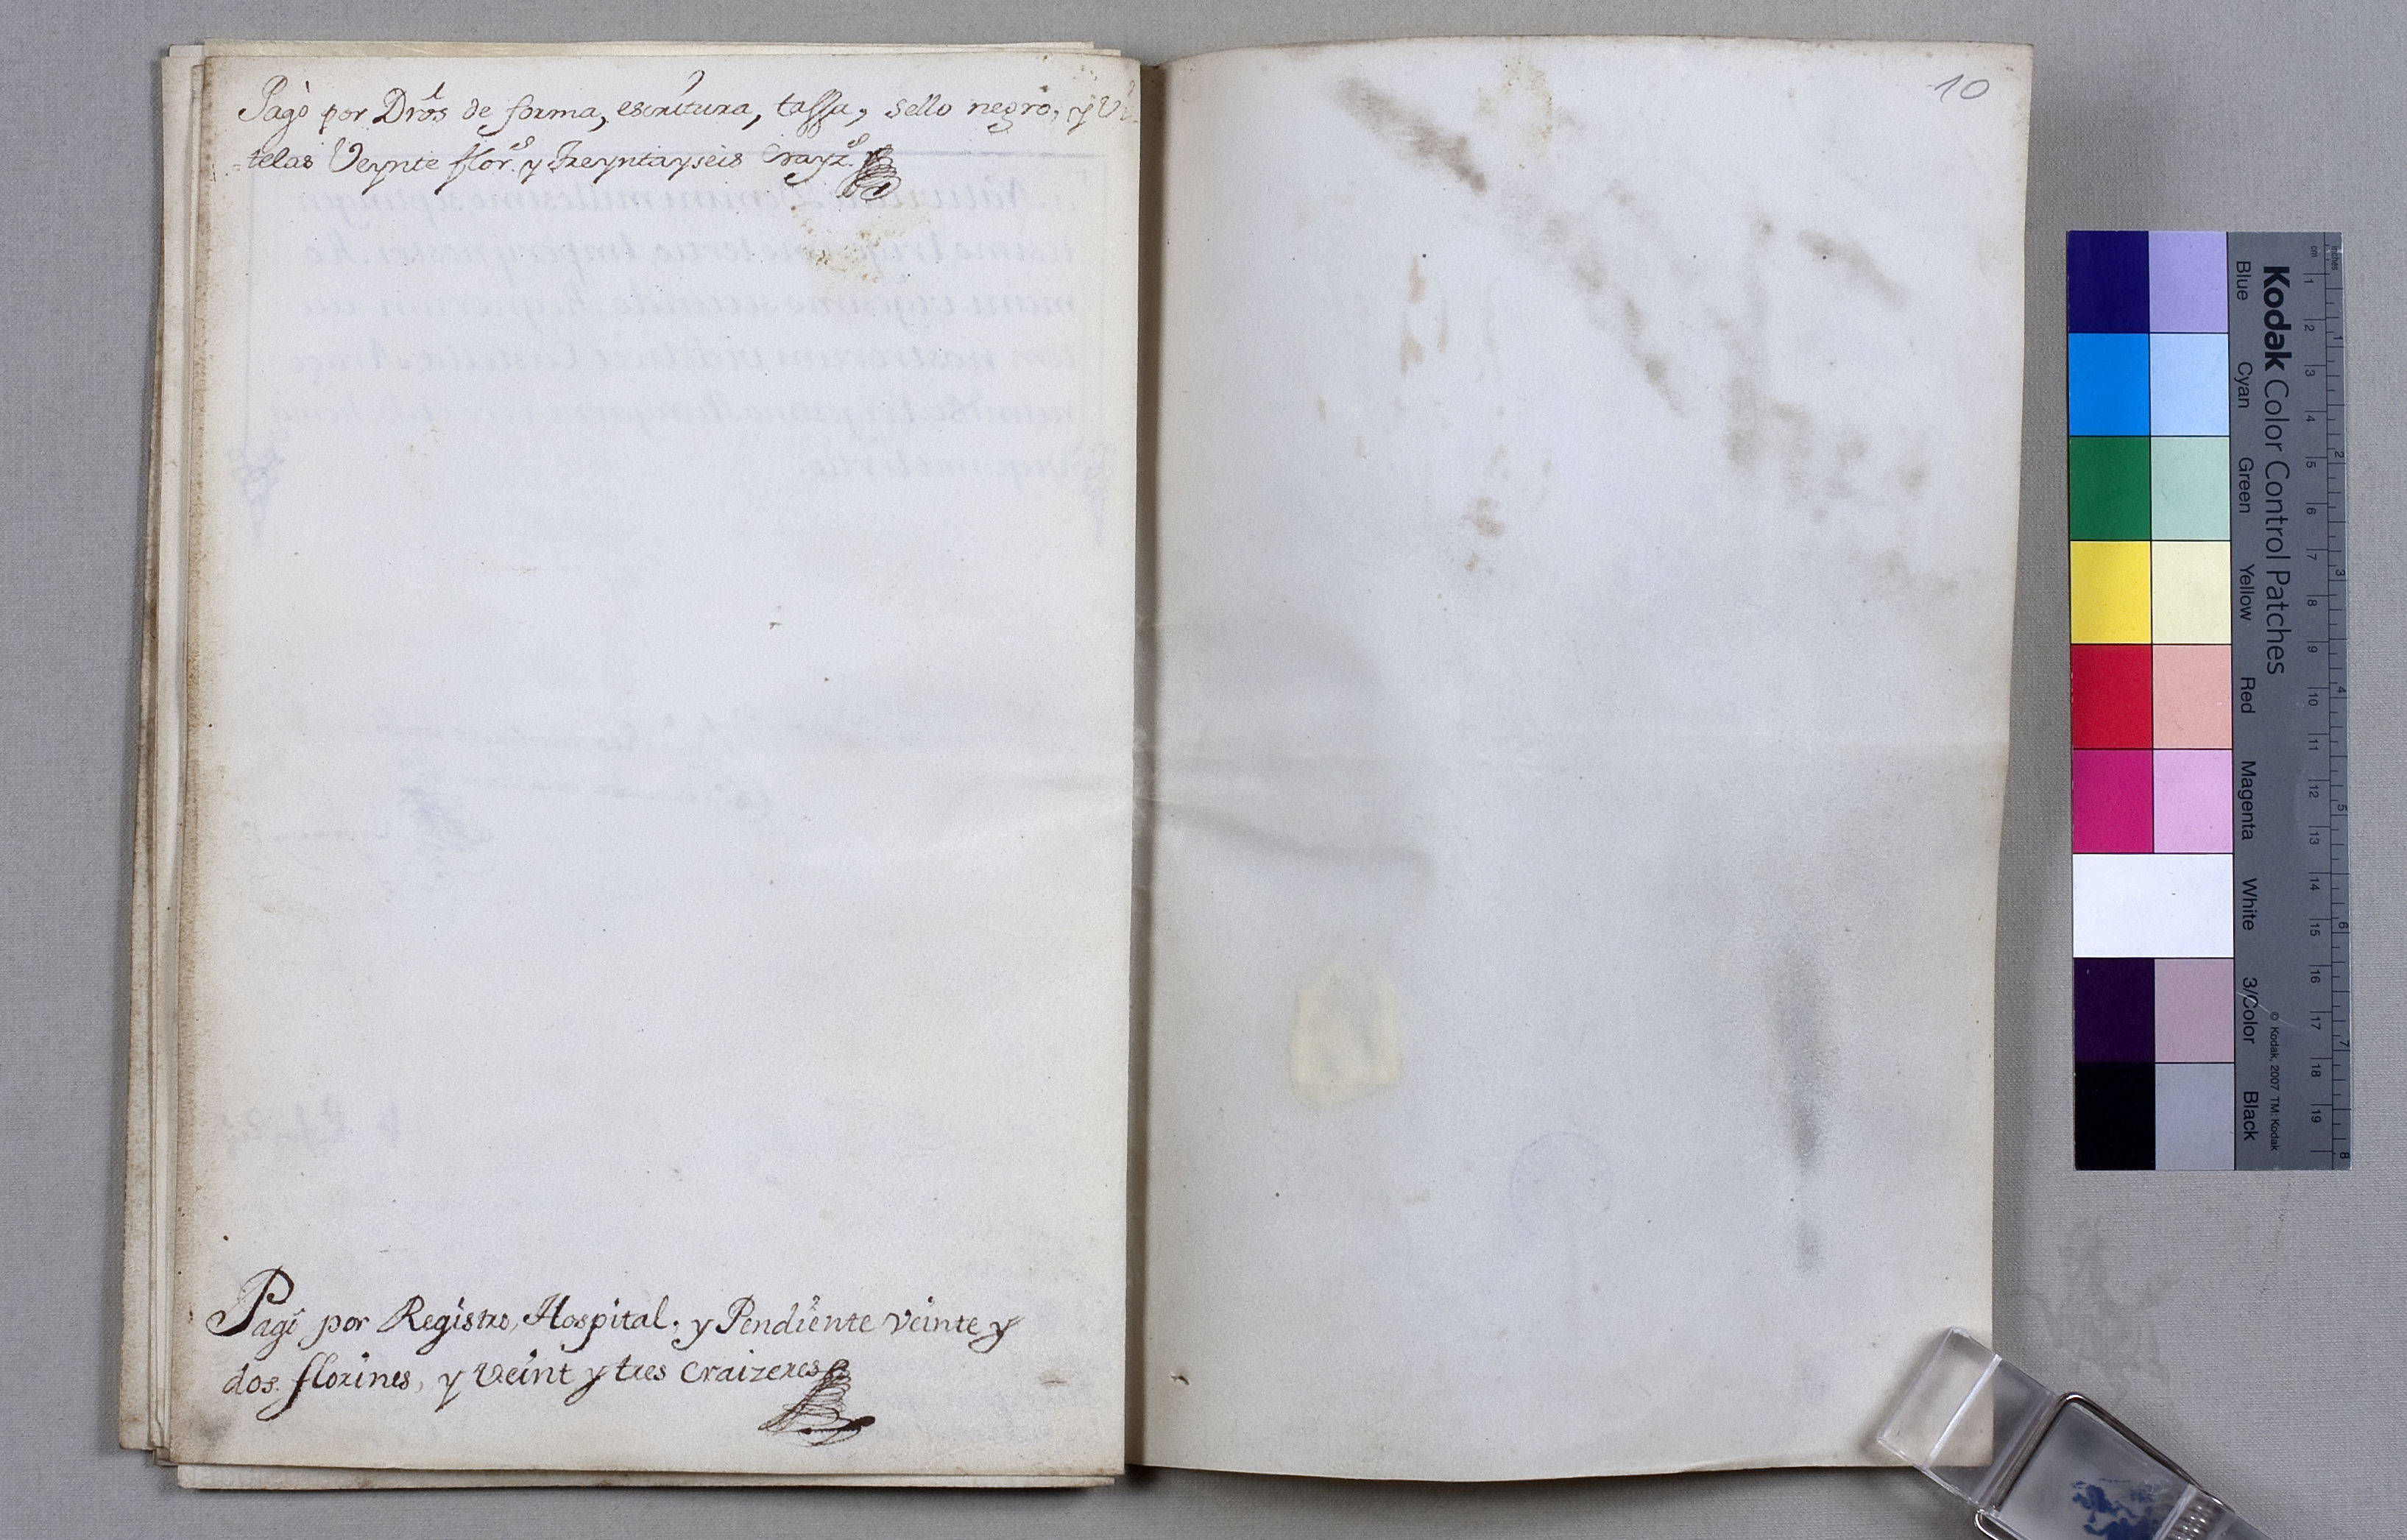 Pagò por Drôs de forma, escritura, tassa, sello negro, y Vi
-telas Veynte flor.ˢ y Treyntayseis Crayz.ˢ
Pagò por Registro, Hospital, y Pendiente veinte y
dos florines, y veint y tres craizeres
10
Kodak Color Control Patches
Blue Cyan Green Yellow Red Magenta White 3/Color Black
© Kodak, 2007 TM: Kodak
cm 1 2 3 4 5 6 7 8 9 10 11 12 13 14 15 16 17 18 19
inches 1 2 3 4 5 6 7 8